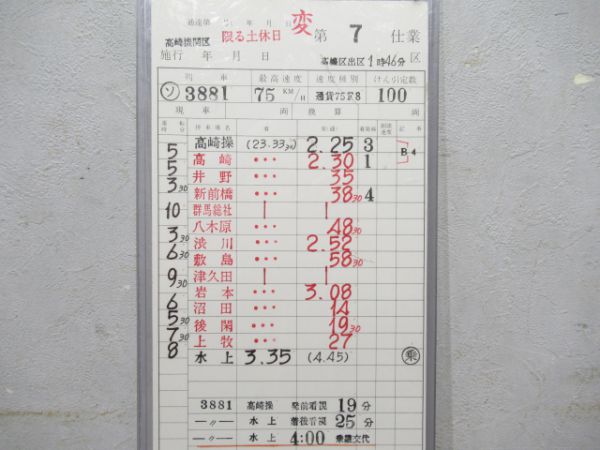 達第 号 年 月 日
高崎機関区 限る土休日 変 第 7 仕業
施行 年 月 日 高機区出区 1時46分 区
列車 最高速度 速度種別 けん引定数
ソ 3881 75 KM/H 通貨75 8 100
現車 両 換算 両
停車場名 着 発(通) 着発線 制限速度 記事
高崎操 (23.33 30) 2.25 3
5 高崎 ・・・ 2.30 1 B 4
5 井野 ・・・ 35
3 30 新前橋 ・・・ 38 30 4
群馬総社 | |
10 八木原 ・・・ 48 30
3 30 渋川 ・・・ 2.52
6 30 敷島 ・・・ 58 30
津久田 | |
9 30 岩本 ・・・ 3.08
6 沼田 ・・・ 14
5 30 後閑 ・・・ 19 30
7 30 上牧 ・・・ 27
8 水上 3.35 (4.45) 乗
3881 高崎操 発前看視 19分
―〃― 水上 着後看視 25分
―〃― 水上 4:00 乗継交代